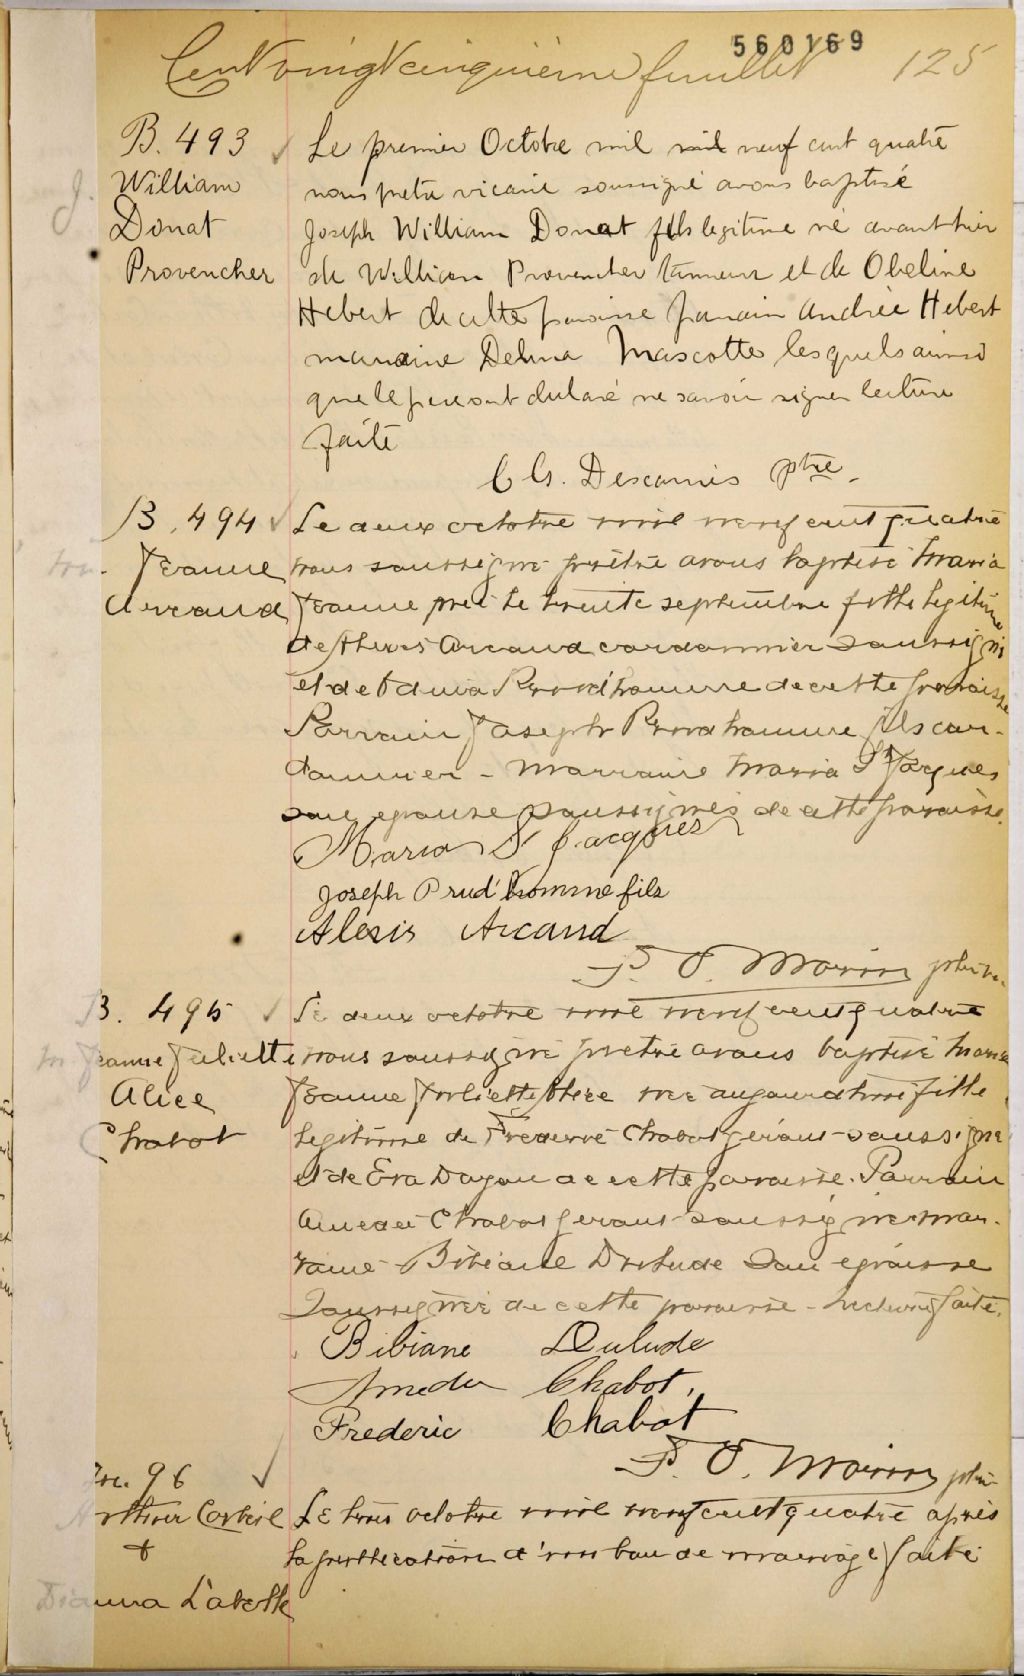 560169
Cent vingt cinquième feuillet 125
B. 493
William
Donat
Provencher
Le premier Octobre mil mil neuf cent quatre
nous pretre vicaire soussigné avons baptisé
Joseph William Donat fils legitime né avant hier
de William Provencher tanneur et de Obeline
Hebert de cette paroisse parrain André Hebert
marraine Delina Mascotte lesquels ainsi
que le pere ont declaré ne savoir signer lecture
faite
Descarries ptre.
B. 494
Jeanne
Arcand
Le deux octobre mil neuf cent quatre
nous soussigné prêtre avons baptisé Maria
Jeanne née le trente septembre fille legitime
de Alexis Arcand cordonnier soussigné
et de Prud'homme de cette paroisse
Parrain Joseph Prudhomme fils cor-
donnier - Marraine Maria St Jacques
son epouse soussignés de cette paroisse.
Maria St Jacques
Joseph Prud'homme fils
Alexis Arcand
O. Morin ptre
B. 495
Jeanne Juliette
Alice
Chabot
Le deux octobre mil neuf cent quatre
nous soussigné pretre avons baptisé Maria
Jeanne Juliette Alice née aujourd'hui fille
legitime de Frederic Chabot gérant soussigné
et de Eva Doyon de cette paroisse. Parrain
Amedée Chabot gerant soussigné mar-
raine Bibiane Dulude son epouse
soussignée de cette paroisse - Lecture faite.
Bibiane Dulude
Amedee Chabot,
Frederic Chabot
O. Morin ptre
m. 96
Arthur Corbeil
+
Dianna Labelle
Le trois octobre mil neuf cent quatre après
la publication d'un ban de mariage faite